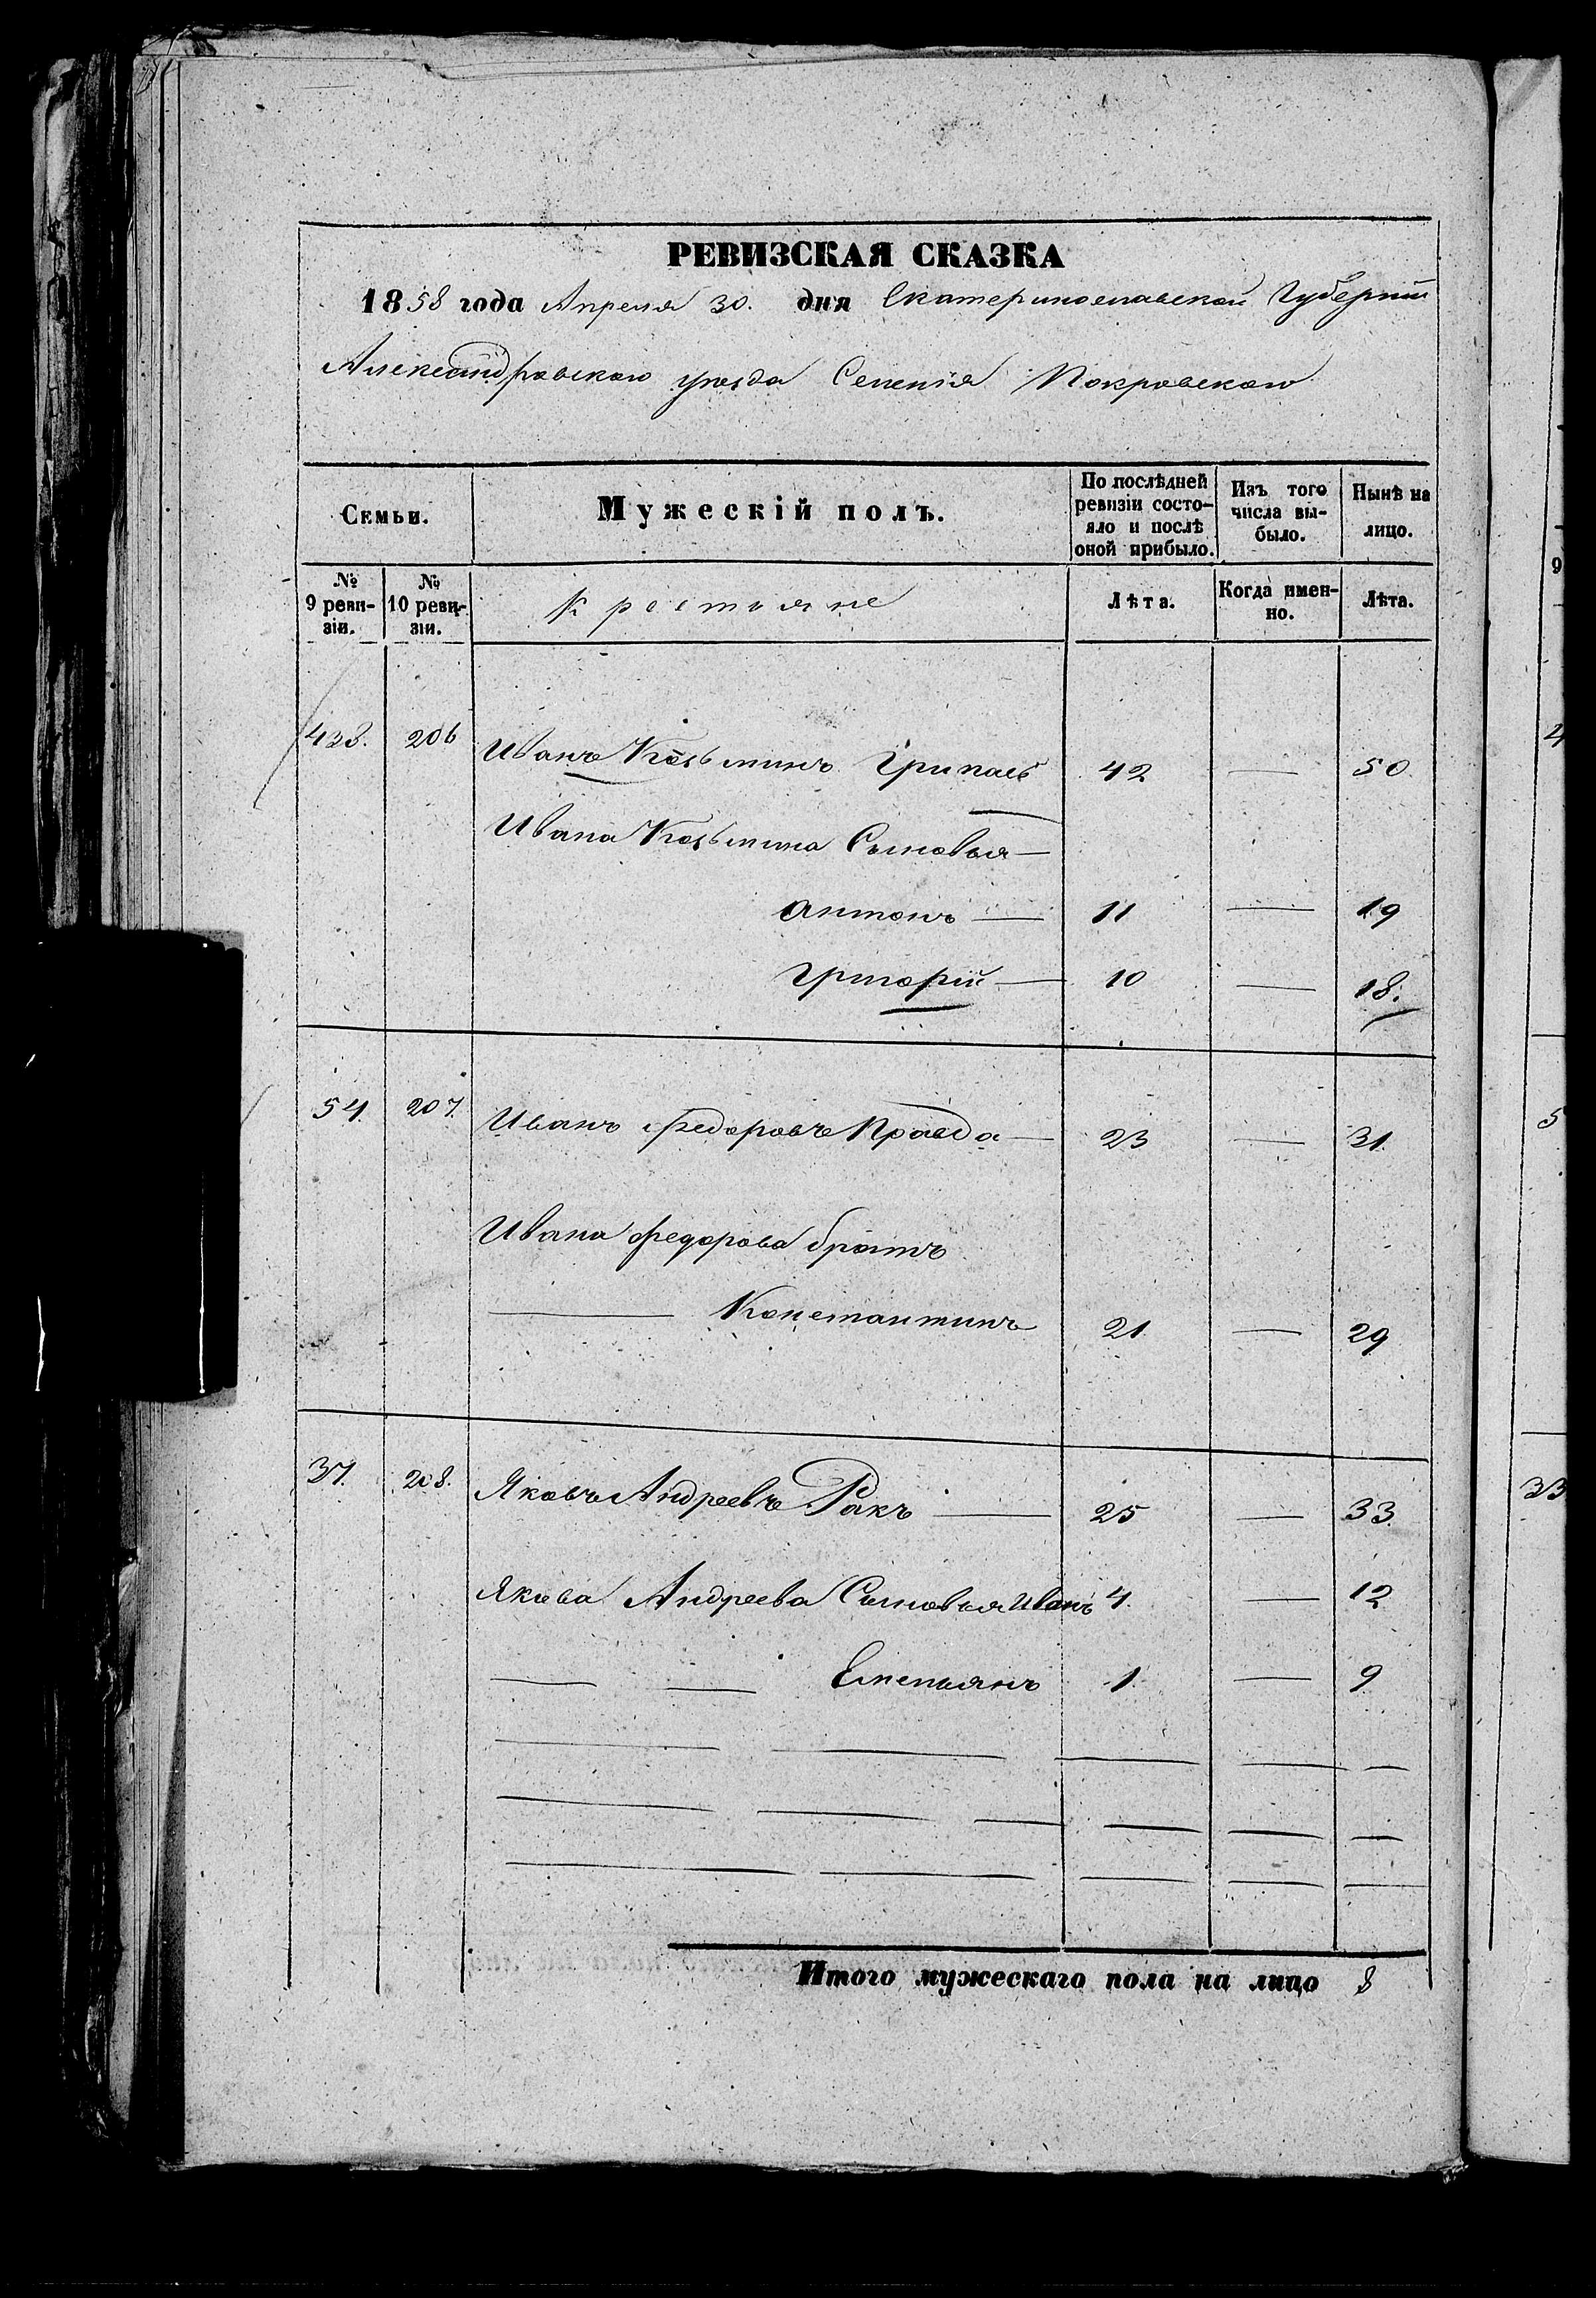 РЕВИЗСКАЯ СКАЗКА
1858 года Апреля 30. дня Екатеринославской Губерніи
Александровскаго уѣзда Селенія Покровскаго
Семьи.
Мужескій полъ.
По послѣдней ревизіи состо-
яло и послѣ оной прибыло.
Изъ того числа вы-
было.
Нынѣ на лицо.
№ 9 реви-
зіи.
№ 10 реви-
зіи.
Крестьяне
Лѣта.
Когда имен-
но.
Лѣта.
438. 206 Иванъ Козьминъ 42 — 50
Ивана Козьмина Сыновья —
Антонъ — 11 — 19
Григорій — 10 — 18.
54. 207. Иванъ Федоровъ Правда — 23 — 31
Ивана Федорова братъ
— Константинъ 21 — 29
37. 208. Яковъ Андреевъ Ракъ — 25 — 33.
Якова Андреева Сыновья Иванъ 4. — 12
— — Емельянъ 1 — 9
Итого мужескаго пола на лицо 8
9
4
5
33